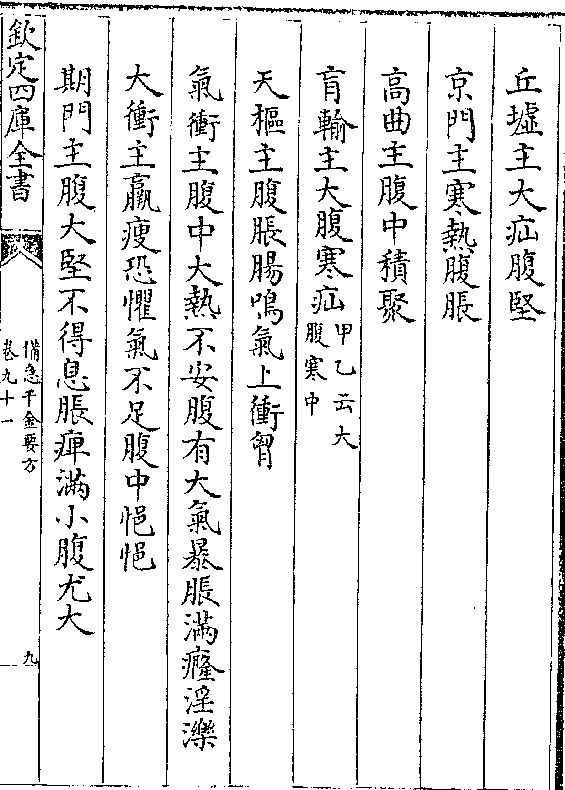 丘墟主大疝腹堅
京門主寒熱腹脹
高曲主腹中積聚
肓輸主大腹寒疝甲乙云大腹寒中
天樞主腹脹腸鳴氣上衝胷
氣衝主腹中大熱不安腹有大氣暴脹滿癃淫濼
大衝主羸瘦恐懼氣不足腹中悒悒
期門主腹大堅不得息脹痺滿小腹尤大
欽定四庫全書
備急千金要方
卷九十一
九